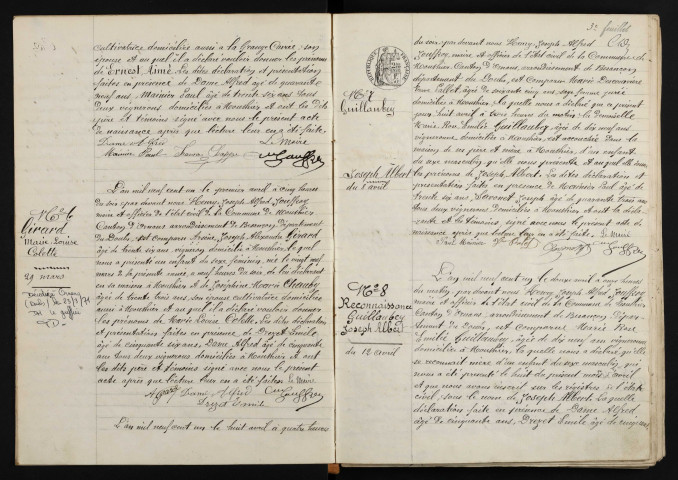 cultivatrice domiciliée aussi à la Grange Carrée son
épouse et au quel il a déclaré vouloir donner les prénoms
de Ernest Aimé. Les dites déclaration et présentation
faites en présence de Dame Alfred âgé de quarante
neuf ans, Mainier Paul âgé de trente six ans tous
deux vignerons domiciliés à Mouthier et ont les dits
père et témoins signé avec nous le présent acte
de naissance après que lecture leur en a été faite.
Le Maire
Mainier Paul
N° 6
Girard
Marie Louise
Colette
29 mars
L'an mil neuf cent un le premier avril à cinq heures
du soir par devant nous Henry Joseph Alfred Jouffroy
maire et officier de l'état civil de la Commune de Mouthier
Canton d'Ornans arrondissement de Besançon, Département
du Doubs, est comparu Joseph Alexandre Girard
âgé de trente six ans, vigneron domicilié à Mouthier, lequel
nous a présenté un enfant du sexe féminin, née le vingt neuf
mars de la présente année, à neuf heures du soir de lui déclarant
en sa maison à Mouthier et de Joséphine Marie
âgée de trente trois ans, son épouse cultivatrice domiciliée
aussi à Mouthier et au quel il a déclaré vouloir donner
les prénoms de Marie Louise Colette. Les dites déclaration
et présentation faites en présence de Drezet Emile
âgé de cinquante six ans, Dame Alfred âgé de cinquante
ans tous deux vignerons, domiciliés à Mouthier et ont
les dits père et témoins signé avec nous le présent
acte après que lecture leur en a été faite. Le Maire
Dame Alfred
Drezet Emile
L'an mil neuf cent un le huit avril à quatre heures
3e feuillet
N° 7
Guillaubey
Joseph Albert
du 8 avril
du soir, par devant nous Henry Joseph Alfred
Jouffroy, maire et officier de l'état civil de la Commune de
Mouthier, Canton d'Ornans, arrondissement de Besançon
département du Doubs, est comparue Marie
âgée de soixante cinq ans, sage femme jurée
domiciliée à Mouthier, laquelle nous a déclaré que ce présent
jour huit avril à trois heures du matin la demoiselle
Marie Rose Emélie Guillaubey, âgée de dix neuf ans
vigneronne domiciliée à Mouthier, est accouchée dans la
maison de son père et mère à Mouthier, d'un enfant
du sexe masculin qu'elle nous présente et auquel elle donne
les prénoms de Joseph Albert. Les dites déclaration et
présentation faites en présence de Mainier Paul âgé de
trente six ans, âgé de quarante trois ans
tous deux vignerons domiciliés à Mouthier et ont la dite
et les témoins, signé avec nous le présent acte de
naissance après que lecture leur en a été faite. Le Maire
Paul Mainier
N° 8
Reconnaissance
Guillaubey
Joseph Albert
du 12 avril
L'an mil neuf cent un le douze avril à onze heures
du matin, par devant nous Henry Joseph Alfred Jouffroy
maire et officier de l'état civil de la Commune de Mouthier
Canton d'Ornans, arrondissement de Besançon Dépar-
tement du Doubs, est comparue Marie Rose
Emélie Guillaubey, âgée de dix neuf ans vigneronne
domiciliée à Mouthier, laquelle nous a déclaré qu'elle
se reconnaît mère d'un enfant du sexe masculin, qui
nous a été présenté le huit du présent mois d'avril
et que nous avons inscrit sur les registres de l'état
civil, sous le nom de Joseph Albert. Laquelle
déclaration faite en présence de Dame Alfred
âgé de cinquante ans, Drezet Emile âgé de cinquante